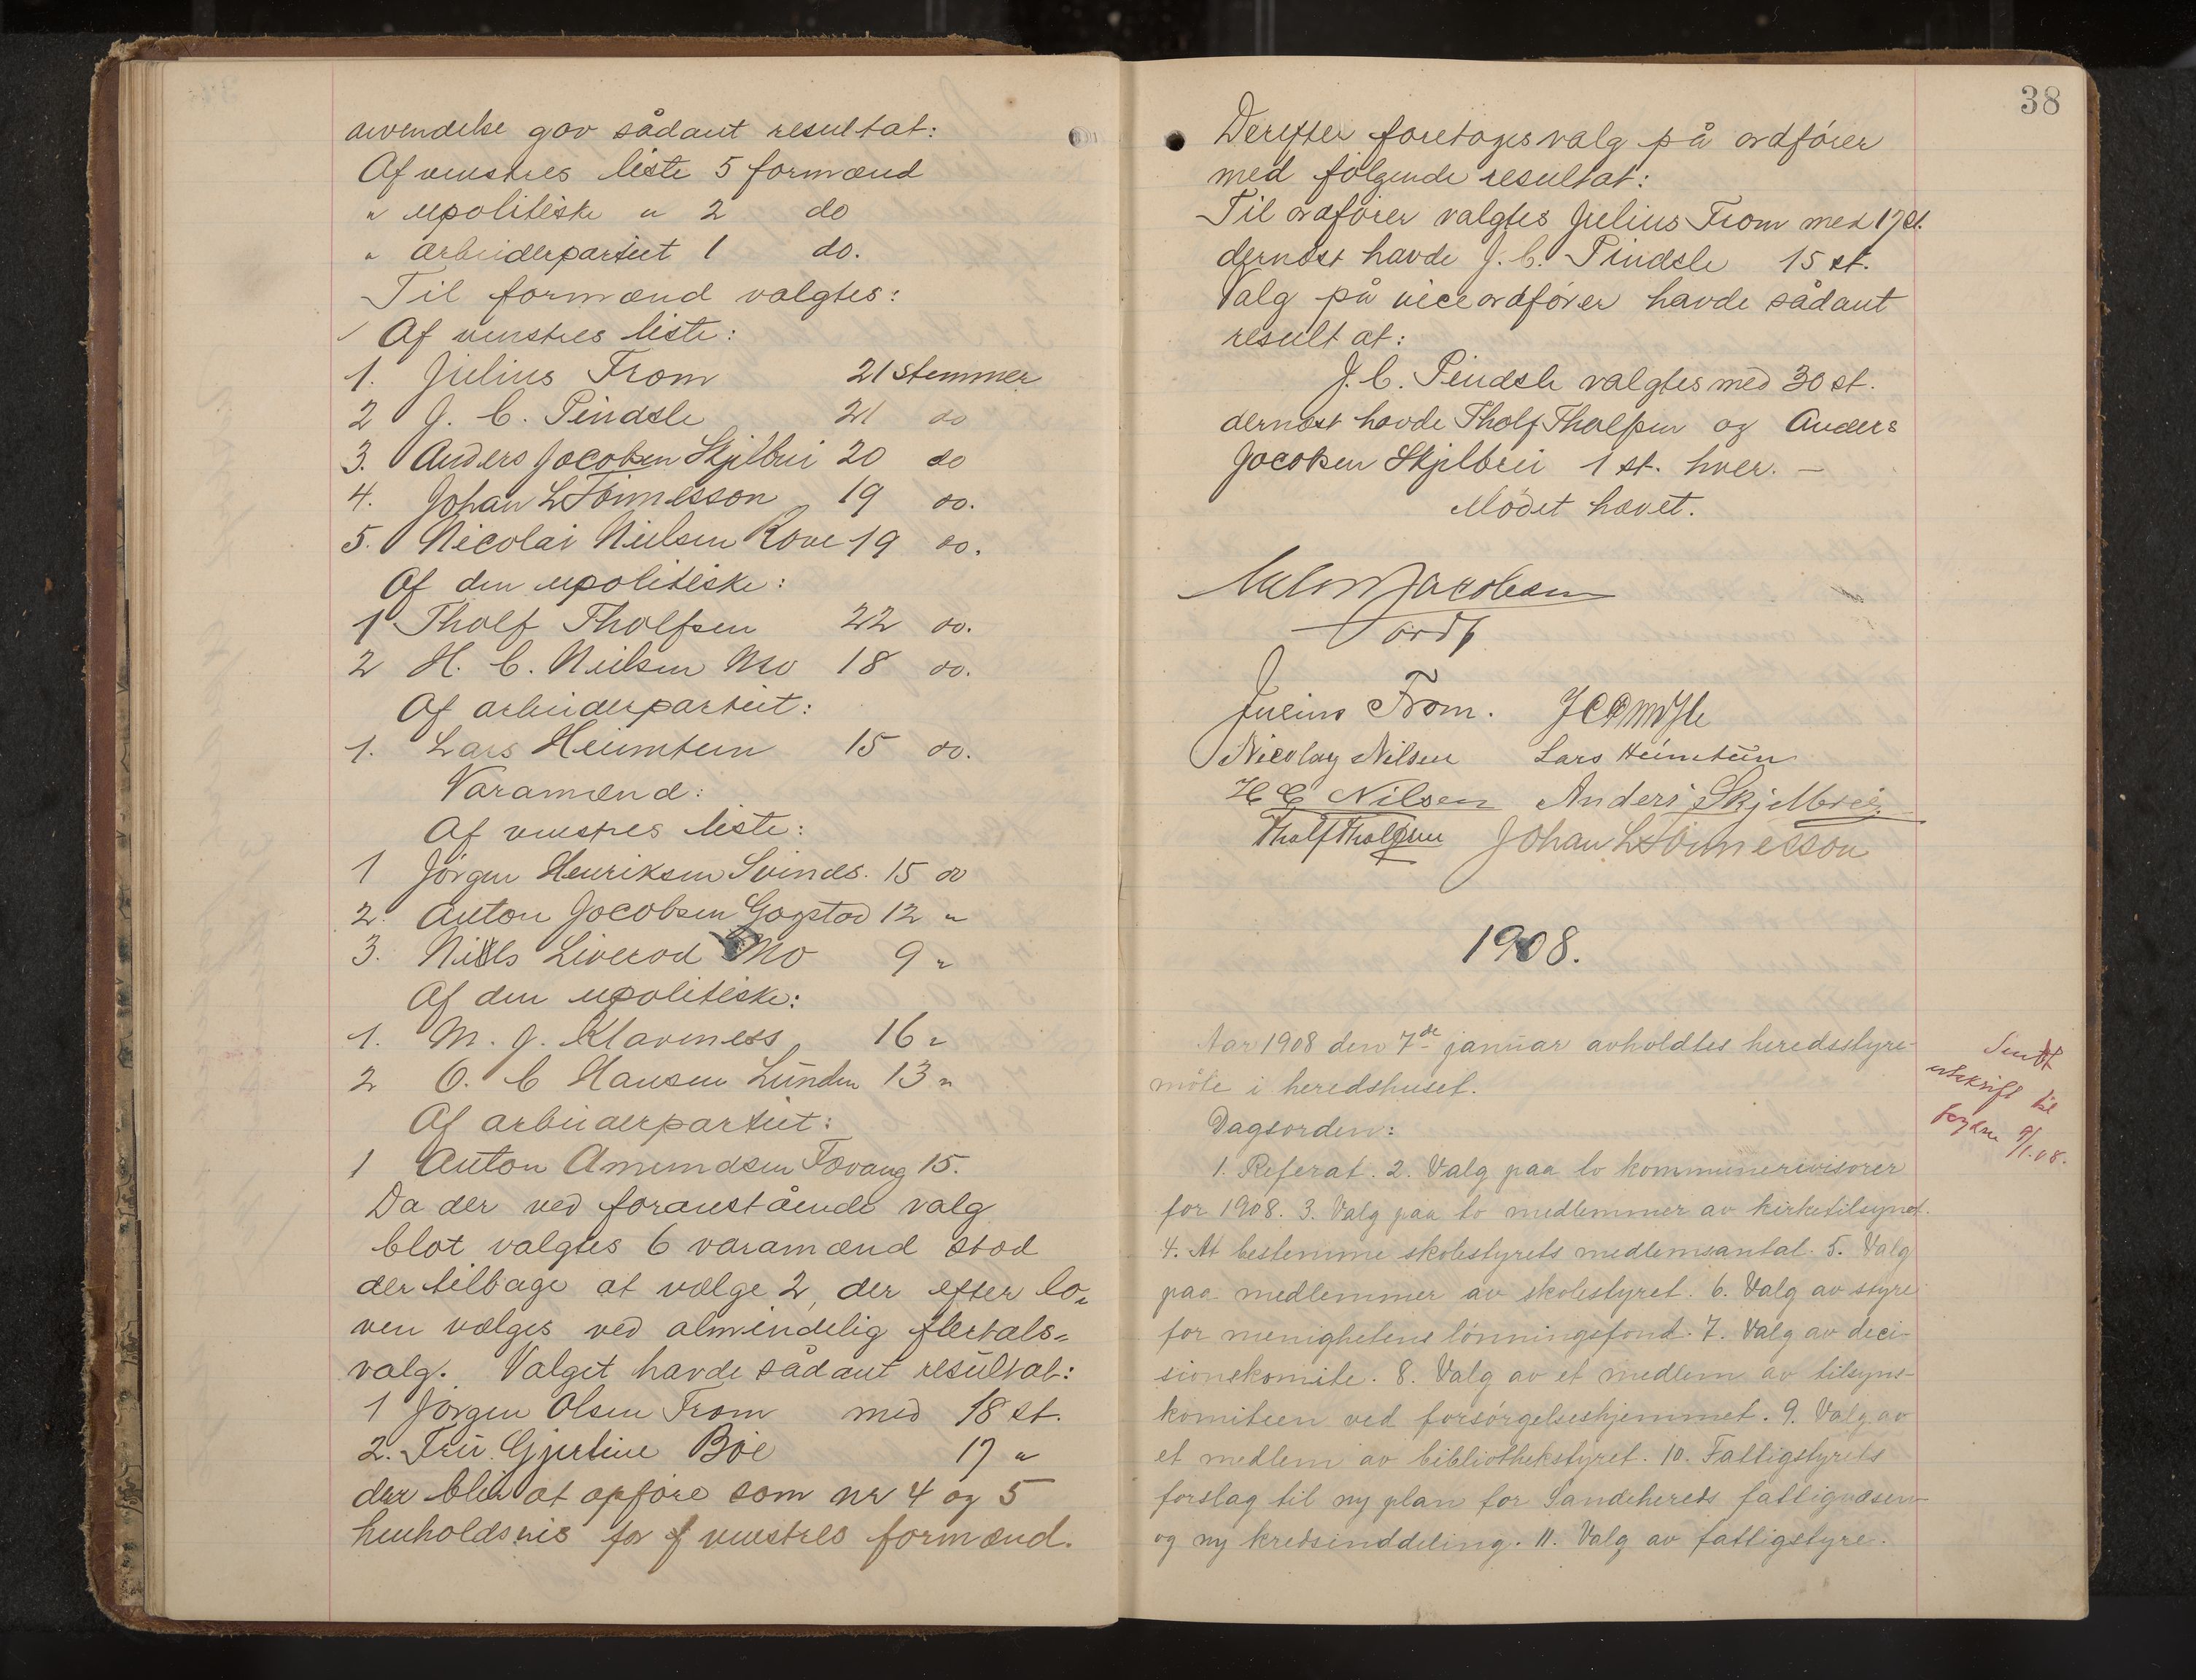 anvendelse gav sådant resultat:
Af venstres liste 5 formænd
" upolitiske " 2 do
" arbeiderpartiet 1 do.
Til formænd valgtes:
Af venstres liste:
1. Julius From 21 stemmer
2 J. C. Pindsle 21 do
3. Anders Jacobsen Skjelbrei 20 do
4. Johan L Tönnesson 19 do.
5. Nicolai Nielsen Rove 19 do.
Af den upolitiske:
1 Tholf Tholfsen 22 do.
2 H. C. Nielsen Mo 18 do.
Af arbeiderpartiet:
1. Lars Heimtun 15 do.
Varamænd:
Af venstres liste:
1 Jörgen Henriksen Svines. 15 do
2. Anton Jacobsen Gogstad 12 "
3. Niels Liverød Mo 9 "
Af den upolitiske:
1. M. J. Klavness 16 "
2 O. C Hansen Lunden 13 "
Af arbeiderpartiet:
1 Anton Amundsen Fævang 15.
Da der ved foranstående valg
blot valgtes 6 varamænd stod
der tilbage at vælge 2, der efter lo=
ven vælges ved almindelig flertals=
valg. Valget havde sådant resultat:
1 Jörgen Olsen From med 18 st.
2. Fru Gjertine Böe 17 "
der blir at opföre som nr 4 og 5
henholdsvis for venstres formænd.
38
Derefter foretoges valg på ordförer
med fölgende resultat:
Til ordförer valgtes Julius From med 17 st.
dernæst havde J. C. Pindsle 15 st.
Valg på viceordförer havde sådant
resultat:
J. C. Pindsle valgtes med 30 st.
dernæst havde Tholf Tholfsen og Anders
Jacobsen Skjelbrei 1 st. hver. —
Mödet hævet.
Jacobsen
ordf
Julius From. J C Pindsle
Nicolay Nilsen Lars Heimtun
H C Nilsen Anders Skjelbrei.
Tholf Tholfsen Johan L Tönnesson
1908.
Aar 1908 den 7de januar avholdtes heredsstyre-
möte i heredshuset.
Sendt
utskrift til
fogden 9/1.08.
Dagsorden:
1. Referat. 2. Valg paa to kommunerevisorer
for 1908. 3. Valg paa to medlemmer av kirketilsynet.
4. At bestemme skolestyrets medlemsantal. 5. Valg
paa medlemmer av skolestyret. 6. Valg av styre
for menighetens lönningsfond. 7. Valg av deci-
sionskomite. 8. Valg av et medlem av tilsyns-
komiteen ved forsörgelseshjemmet. 9. Valg av
et medlem av bibliothekstyret. 10. Fattigstyrets
forslag til ny plan for Sandehereds fattigvæsen
og ny kredsinddeling. 11. Valg av fattigstyre.